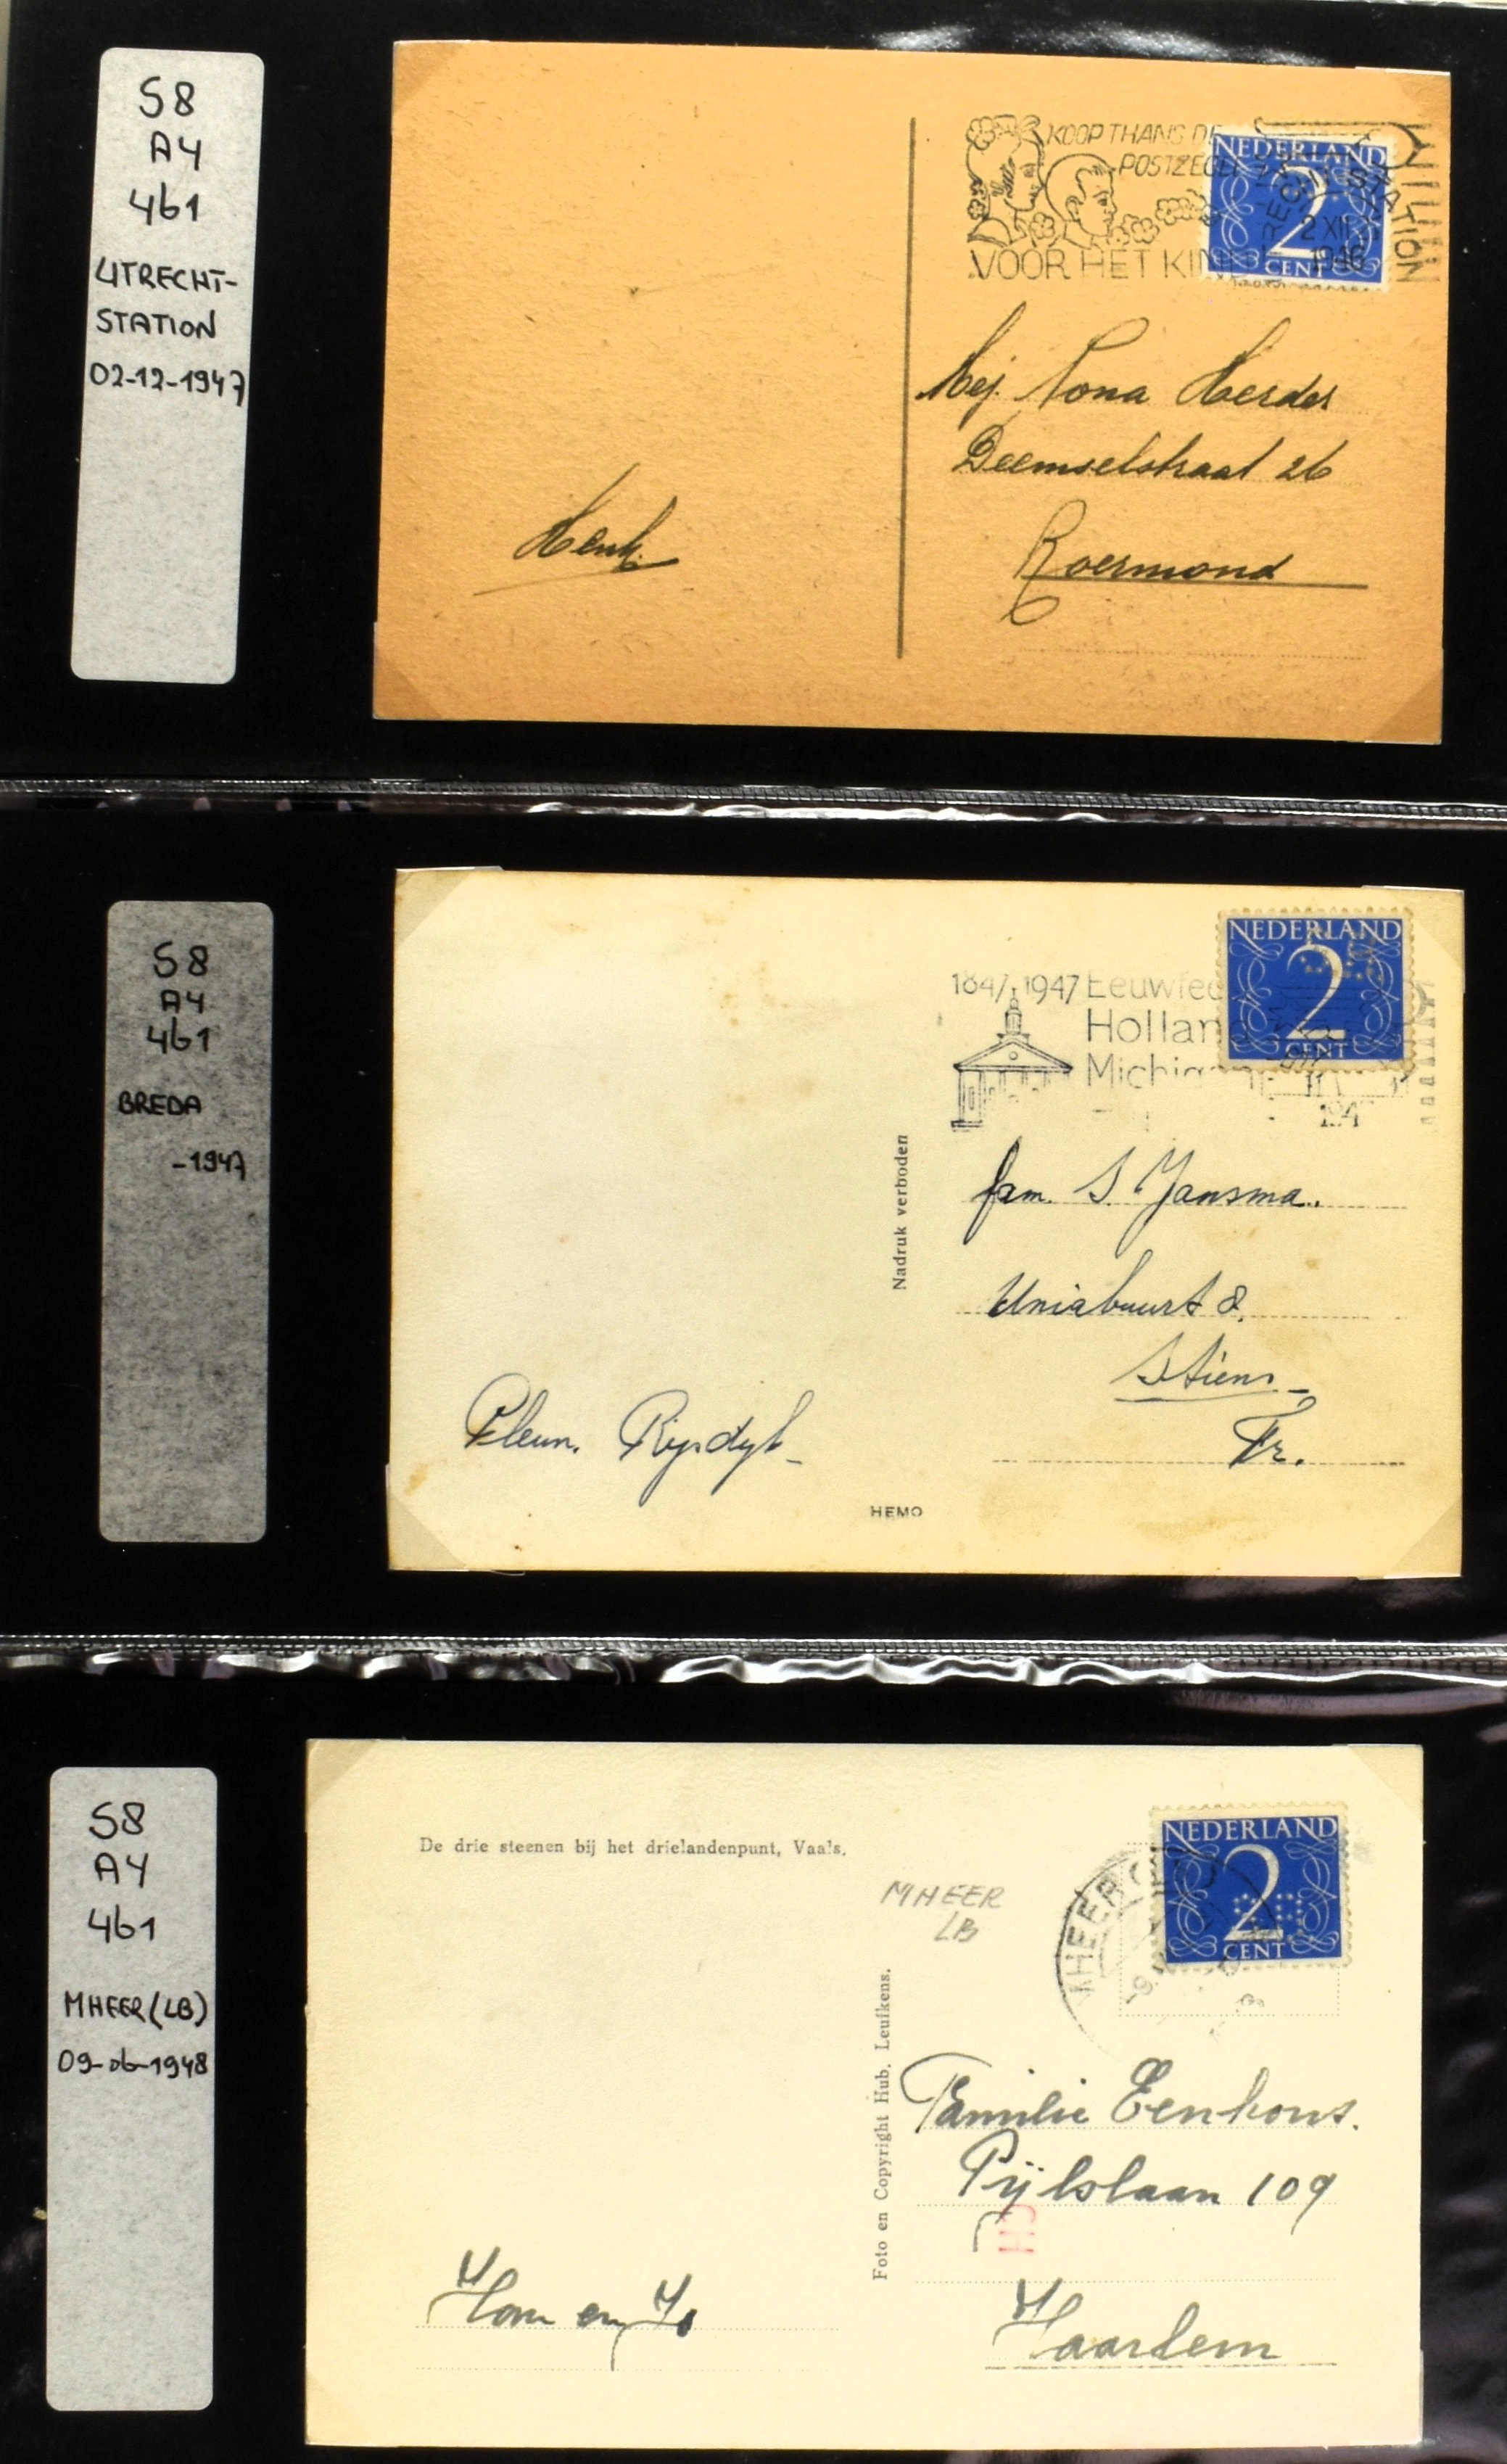 S8
A4
461
UTRECHT-
STATION
02-12-1947
KOOP THANS DE
POSTZEGEL
VOOR HET KIN
STATION
2 XII
1946
NEDERLAND
2
CENT
Mej. Nona Herder
Deemselstraat 26
Roermond
Henk.
S8
A4
461
BREDA
-1947
1847 1947 Eeuwfee
Holland
Michigan
NEDERLAND
2
CENT
Nadruk verboden
fam. S. Jansma.
Uniabuurt 8.
Stiens
Fr.
Pleun. Rijsdijk
HEMO
S8
A4
461
MHEER (LB)
09-06-1948
De drie steenen bij het drielandenpunt, Vaals.
MHEER
LB
NEDERLAND
2
CENT
Foto en Copyright Hub. Leufkens.
Familie Eenhous.
Pijlslaan 109
Haarlem
Hom en Jo